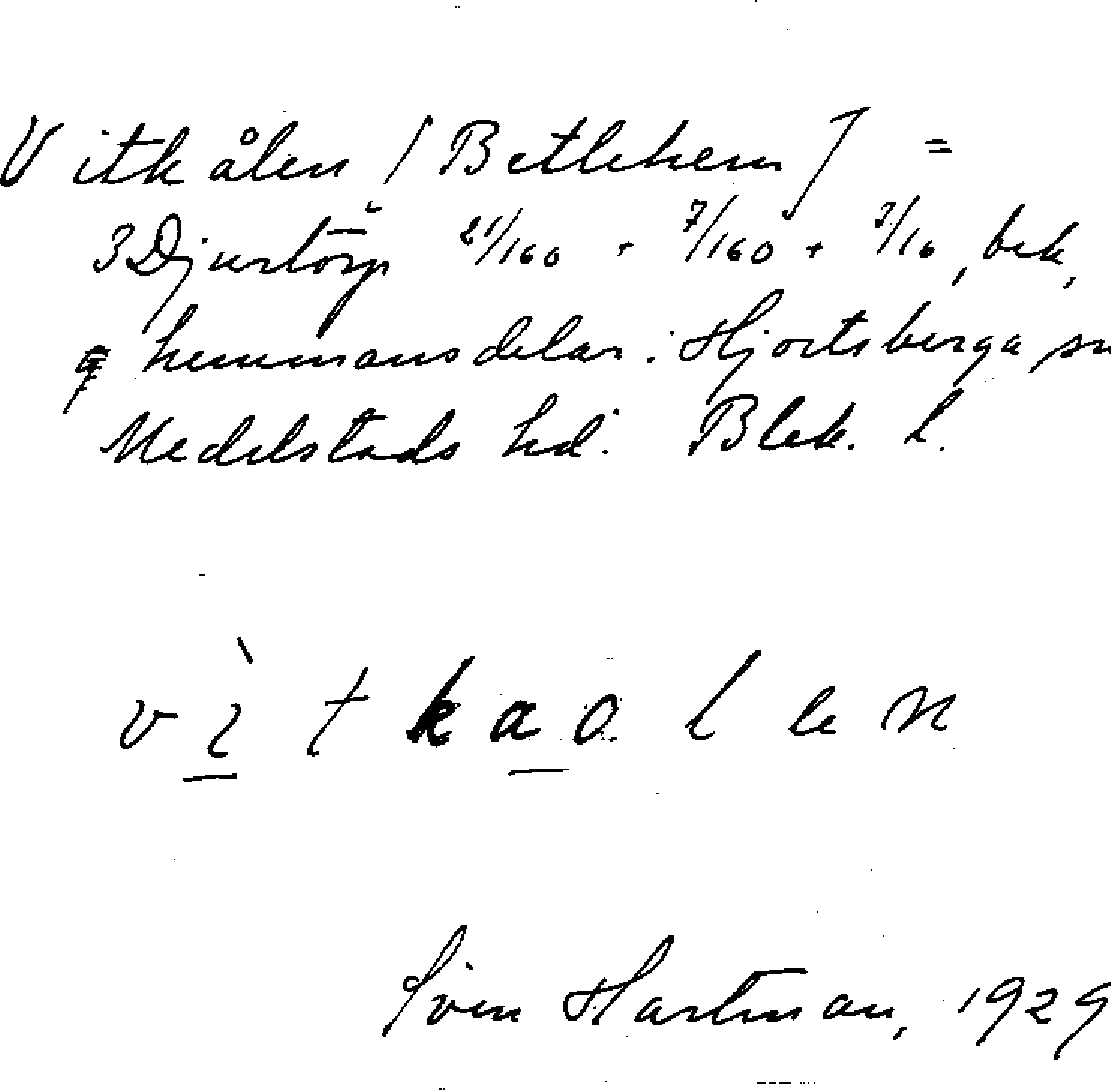 Vitkålen [Betlehem] =
3 Djurtorp 21/160 + 7/160 + 7/16, bek,
hemmansdelar i Hjortsberga sn
Medelstads hd. Blek. l.
vìtkaolen
Sven Hartman, 1929